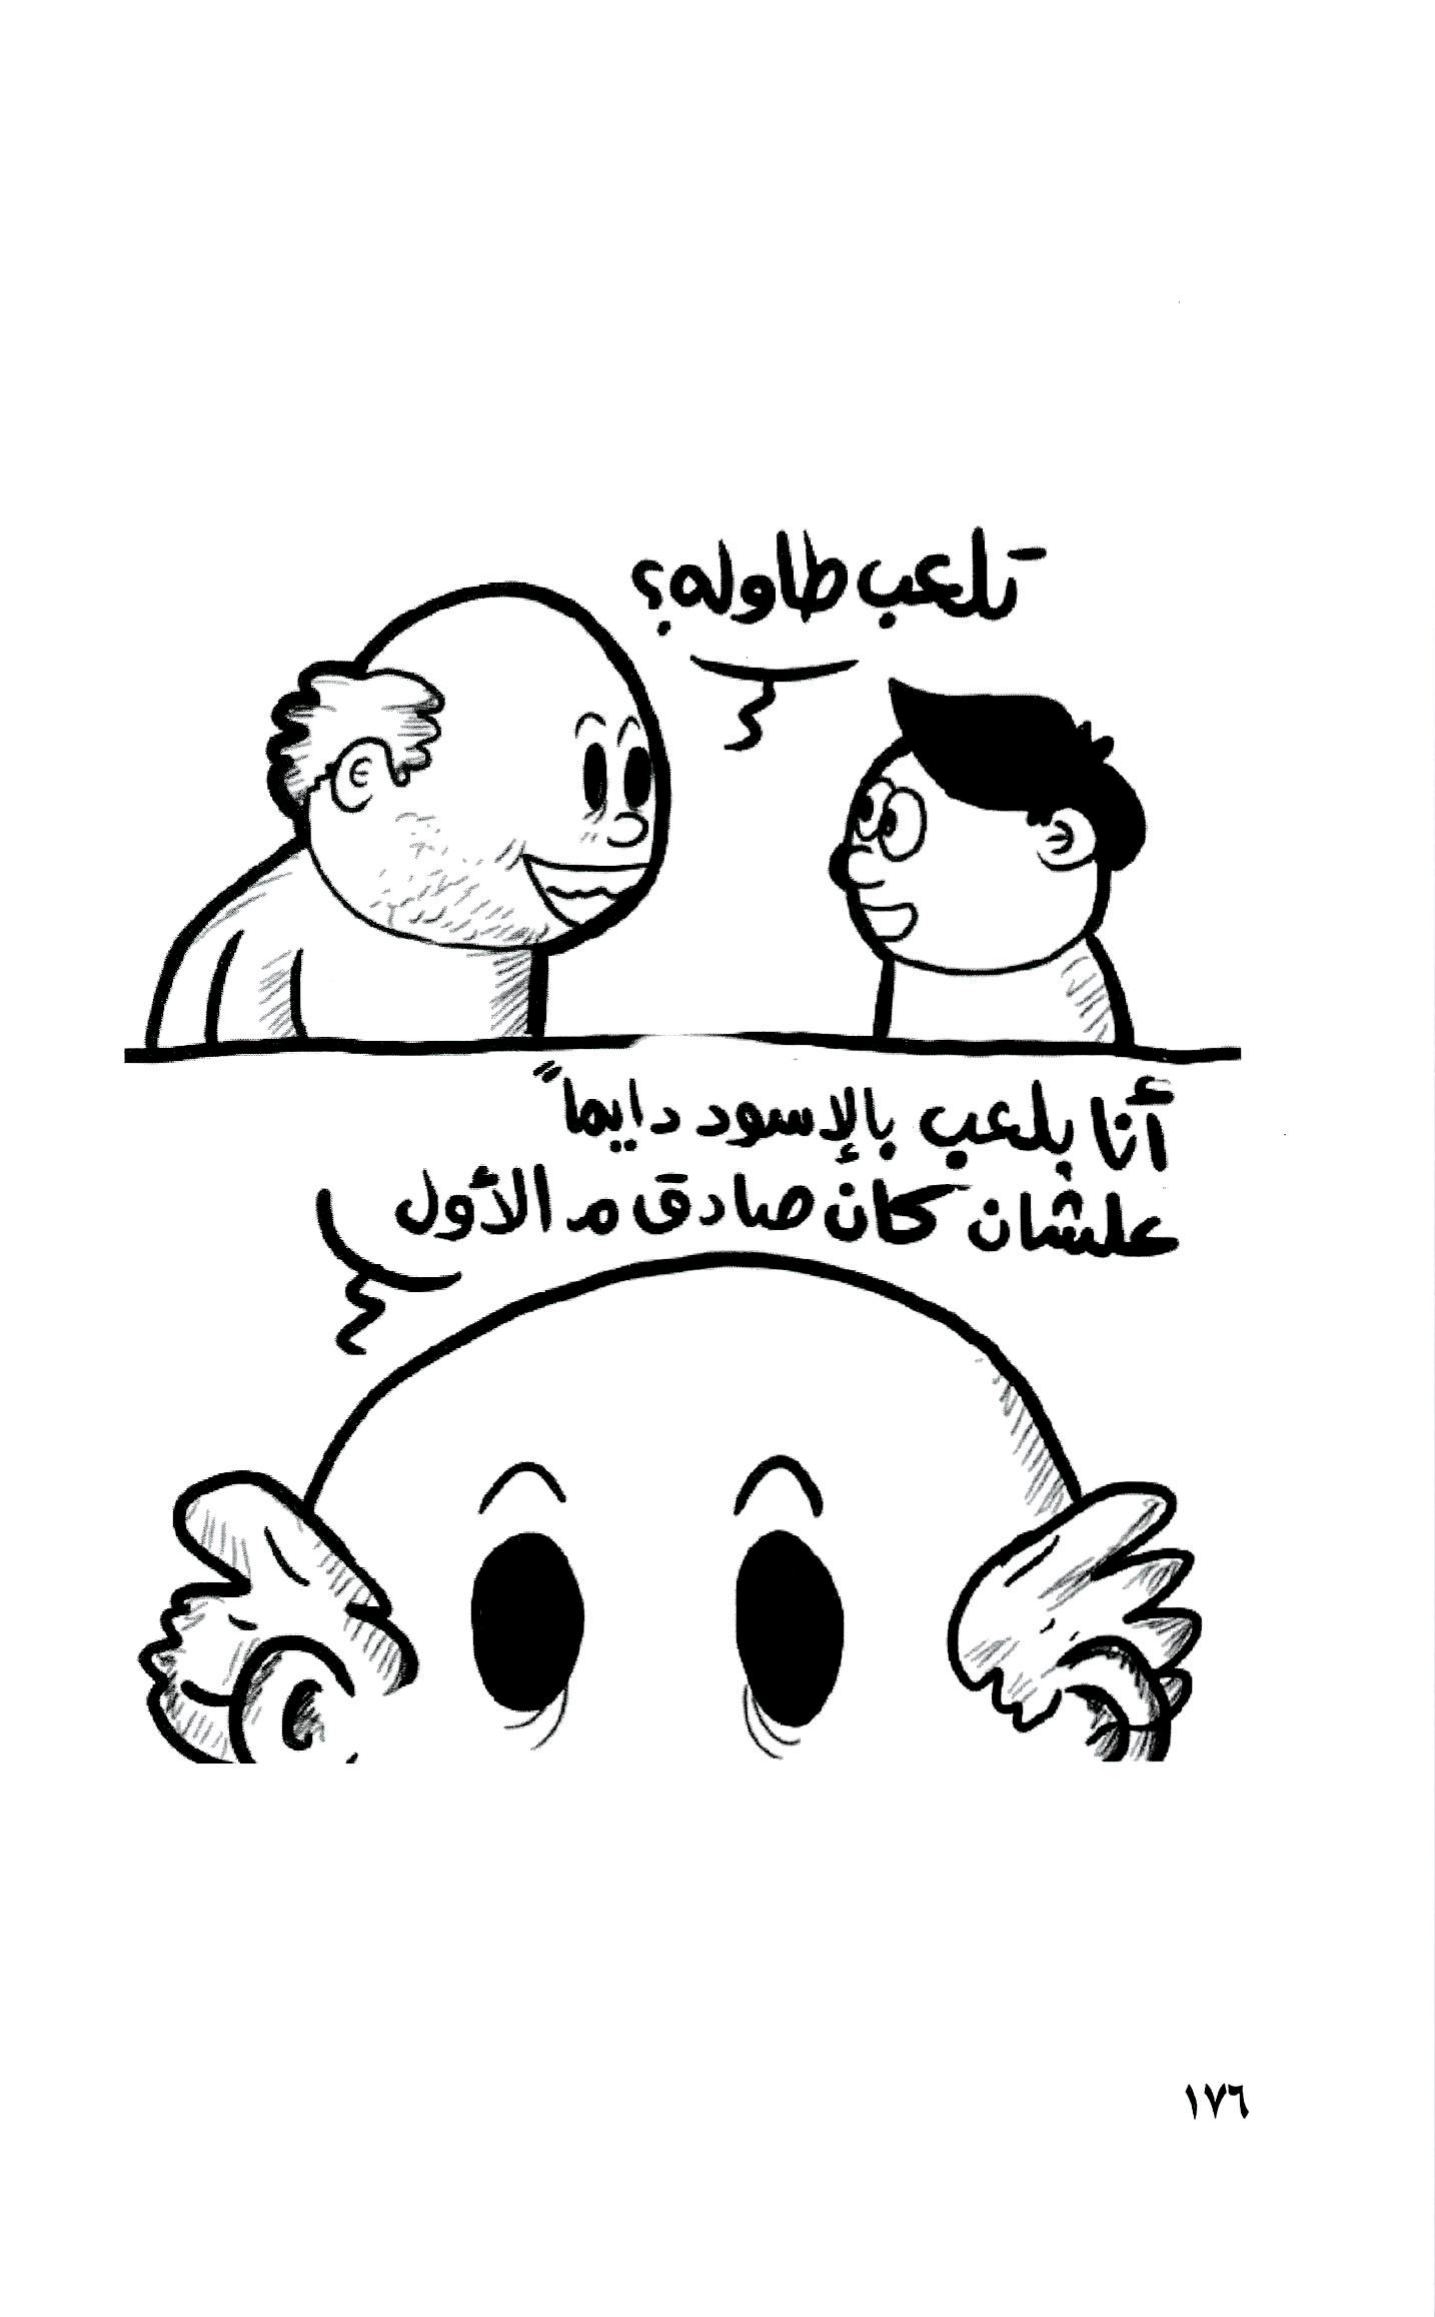 تلعب طاوله؟
أنا بلعب بالإسود دايماً
علشان كان صادق مـ الأول
١٧٦